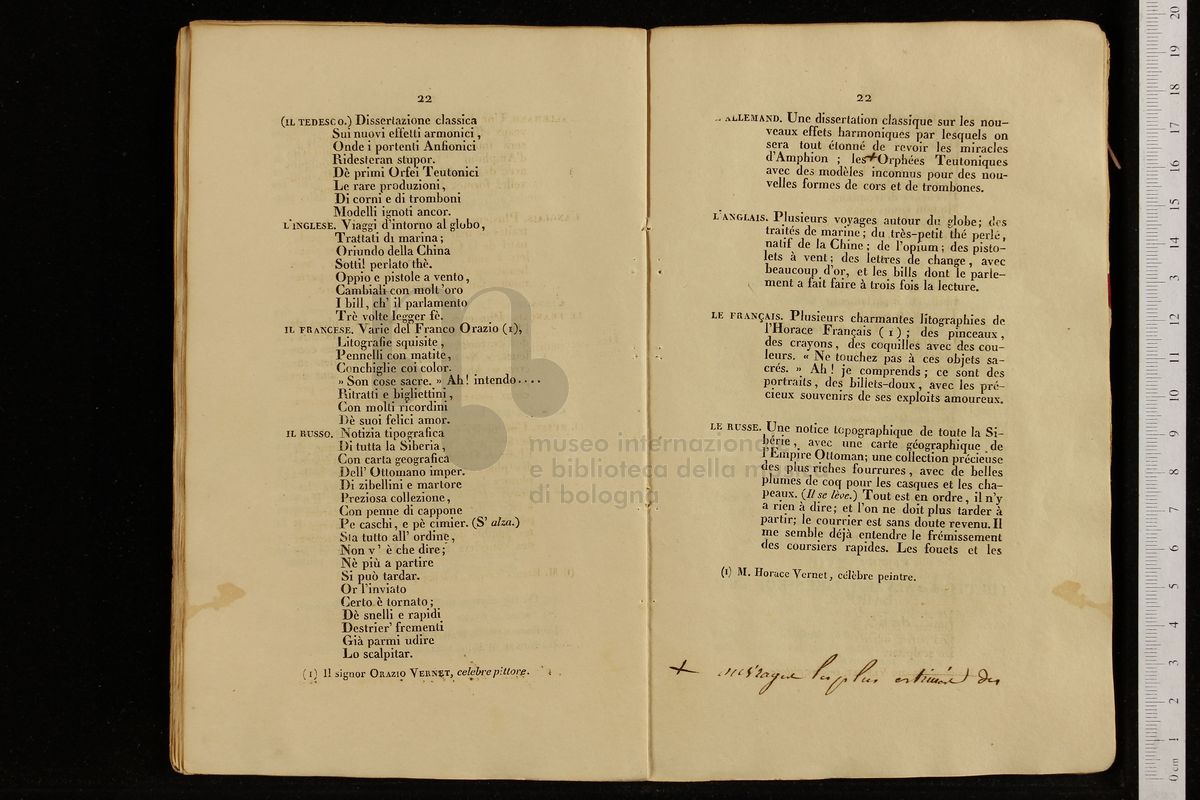 22
(IL TEDESCO.) Dissertazione classica
Sui nuovi effetti armonici,
Onde i portenti Anfionici
Ridesteran stupor.
Dè primi Orfei Teutonici
Le rare produzioni,
Di corni e di tromboni
Modelli ignoti ancor.
L'INGLESE. Viaggi d'intorno al globo,
Trattati di marina;
Oriundo della China
Sottil perlato thè.
Oppio e pistole a vento,
Cambiali con molt'oro
I bill, ch' il parlamento
Trè volte legger fè.
IL FRANCESE. Varie del Franco Orazio (1),
Litografie squisite,
Pennelli con matite,
Conchiglie coi color.
» Son cose sacre. » Ah! intendo....
Ritratti e bigliettini,
Con molti ricordini
Dè suoi felici amor.
IL RUSSO. Notizia tipografica
Di tutta la Siberia,
Con carta geografica
Dell' Ottomano imper.
Di zibellini e martore
Preziosa collezione,
Con penne di cappone
Pe caschi, e pè cimier. (S' alza.)
Sta tutto all' ordine,
Non v' è che dire;
Nè più a partire
Si può tardar.
Or l'inviato
Certo è tornato;
Dè snelli e rapidi
Destrier' frementi
Già parmi udire
Lo scalpitar.
(1) Il signor ORAZIO VERNET, celebre pittore.
22
ALLEMAND. Une dissertation classique sur les nou-
veaux effets harmoniques par lesquels on
sera tout étonné de revoir les miracles
d'Amphion ; les + Orphées Teutoniques
avec des modèles inconnus pour des nou-
velles formes de cors et de trombones.
L'ANGLAIS. Plusieurs voyages autour du globe; des
traités de marine; du très-petit thé perlé,
natif de la Chine; de l'opium; des pisto-
lets à vent; des lettres de change, avec
beaucoup d'or, et les bills dont le parle-
ment a fait faire à trois fois la lecture.
LE FRANÇAIS. Plusieurs charmantes litographies de
l'Horace Français (1); des pinceaux,
des crayons, des coquilles avec des cou-
leurs. « Ne touchez pas à ces objets sa-
crés. » Ah! je comprends; ce sont des
portraits, des billets-doux, avec les pré-
cieux souvenirs de ses exploits amoureux.
LE RUSSE. Une notice topographique de toute la Si-
bérie, avec une carte géographique de
l'Empire Ottoman; une collection précieuse
des plus riches fourrures, avec de belles
plumes de coq pour les casques et les cha-
peaux. (Il se lève.) Tout est en ordre, il n'y
a rien à dire; et l'on ne doit plus tarder à
partir; le courrier est sans doute revenu. Il
me semble déjà entendre le frémissement
des coursiers rapides. Les fouets et les
(1) M. Horace Vernet, célèbre peintre.
+ les plus estimés des
museo internazionale
e biblioteca della musica
di bologna
0 cm 1 2 3 4 5 6 7 8 9 10 11 12 13 14 15 16 17 18 19 20